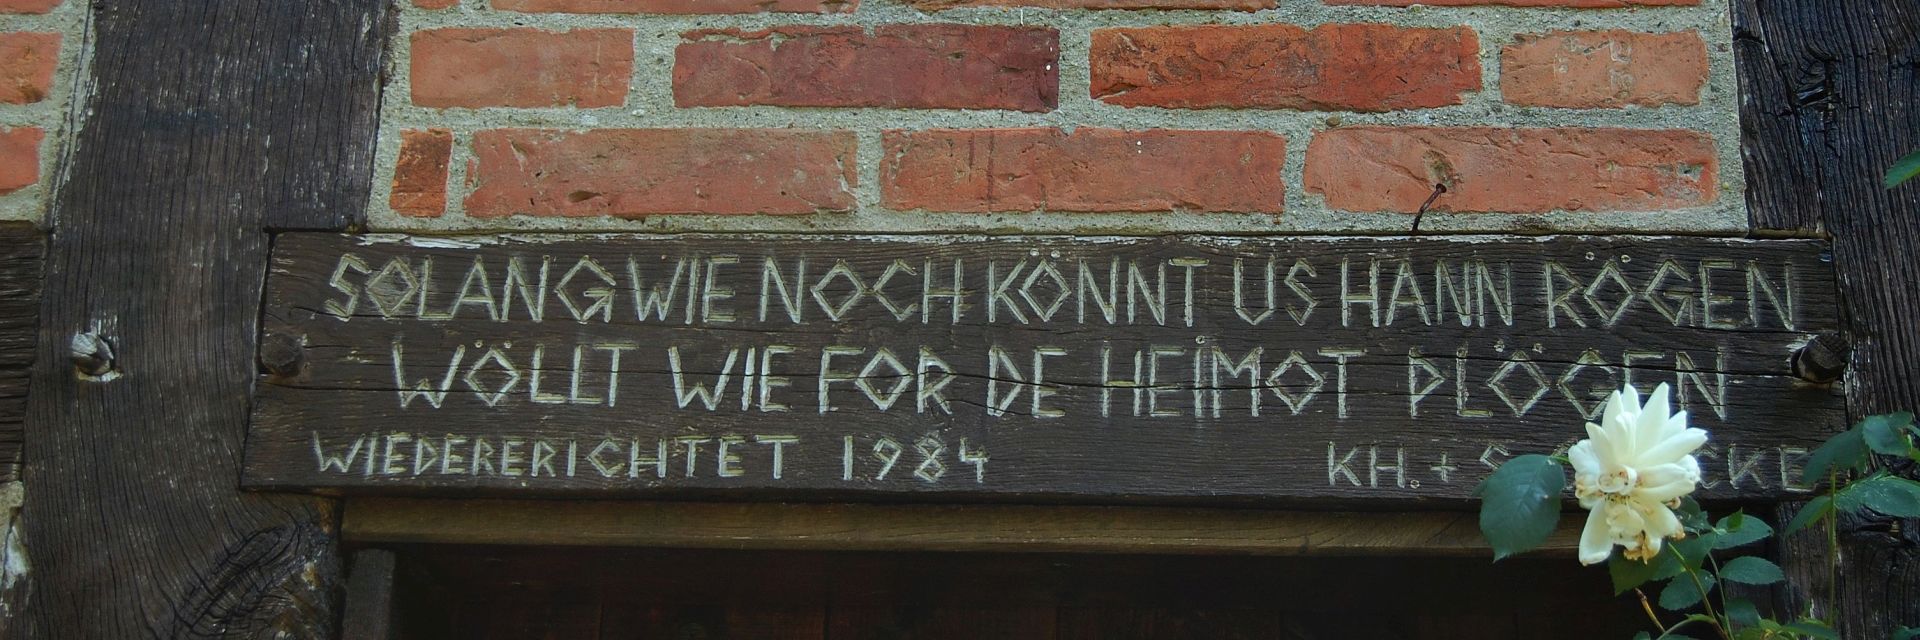 SOLANG WIE NOCH KÖNNT US HANN RÖGEN
WÖLLT WIE FOR DE HEIMOT PLÖGEN
WIEDERERICHTET 1984
KH. +